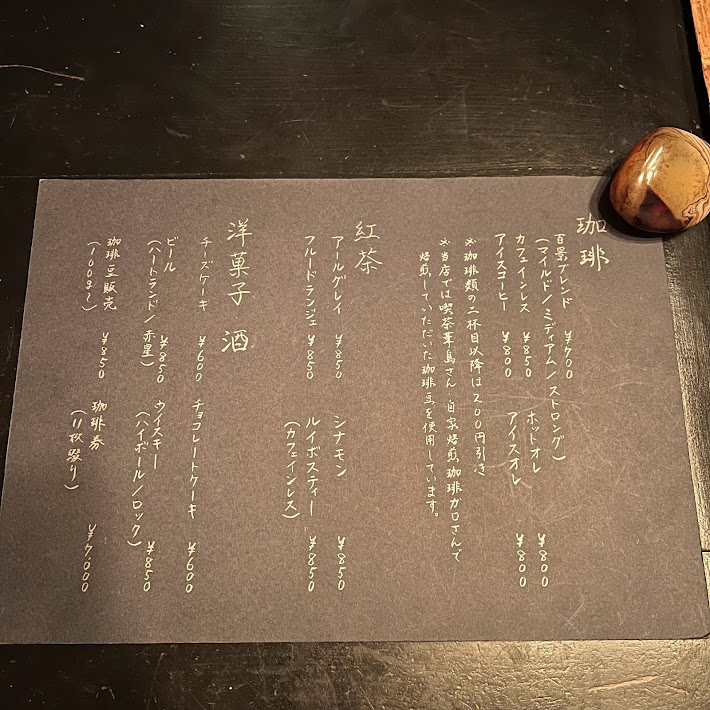 珈琲
百景ブレンド ¥700
(マイルド/ミディアム/ストロング)
カフェインレス ¥850 ホットオレ ¥800
アイスコーヒー ¥800 アイスオレ ¥800
※珈琲類の二杯目以降は200円引き
※当店では喫茶葦島さん、自家焙煎珈琲ガロさんで
焙煎していただいた珈琲豆を使用しています。
紅茶
アールグレイ ¥850 シナモン ¥850
フルードランジェ ¥850 ルイボスティー ¥850
(カフェインレス)
洋菓子 酒
チーズケーキ ¥600 チョコレートケーキ ¥600
ビール ¥850 ウイスキー ¥850
(ハートランド/赤星) (ハイボール/ロック)
珈琲豆販売 ¥850 珈琲券 ¥7000
(100g〜) (11枚綴り)